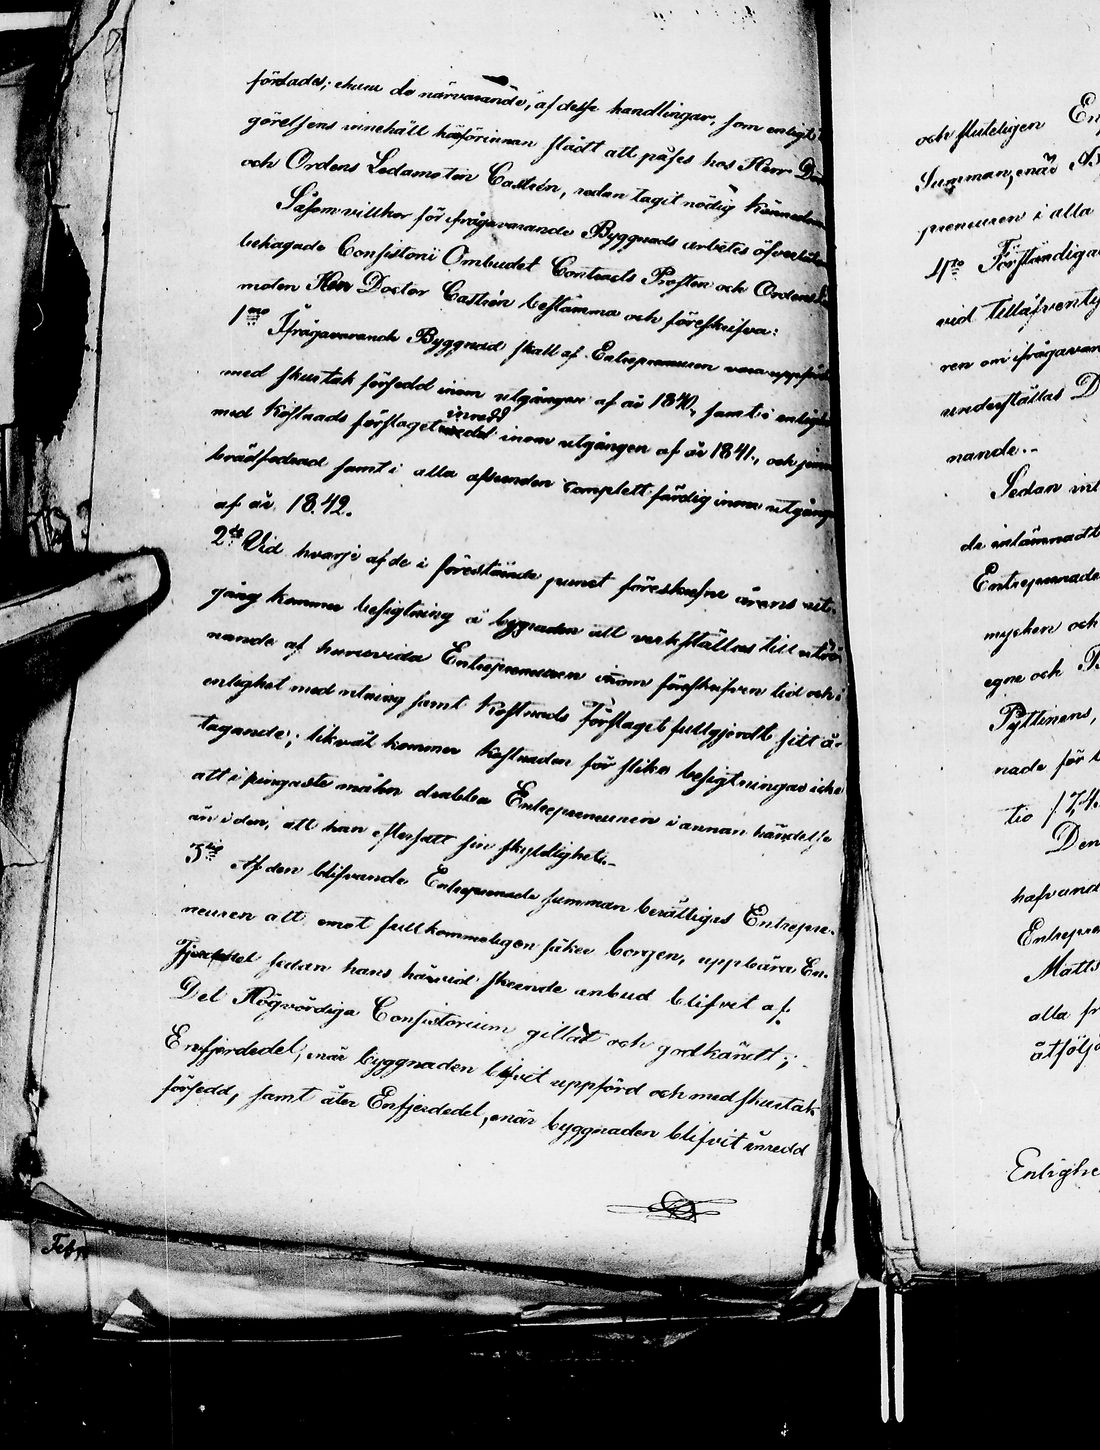 förtades; ehuru de närvarande, af desse handlingar, som enligt
görelsens innehåll härförinnan stådt att påses hos Herr
och Ordens Ledamoten Castrén, redan tagit nödig
Såsom villkor för ifrågavarande Byggnads arbetes
behagade Consistorii Ombudet Contracts Prosten och Ordens
moten Herr Doctor Castrén bestämma och föreskrifva:
1mo Ifrågavarande Byggnad skall af Entrepreneuren vara
med skurtak försedd inom utgången af år 1840, samt i enligt
med Kostnads förslaget inredd inom utgången af år 1841., och
brädfodrad samt i alla afseenden complett färdig inom utgång
af år 1842.
2do Vid hvarje af de i förestående punct föreskrefne årens ut-
gång kommer besigtning å byggnaden att verkställas till utrö-
nande af huruvida Entrepreneuren inom föreskrifven tid och i
enlighet med ritning samt Kostnads Förslaget fullgjordt sitt å-
tagande; likväl kommer Kostnaden för slika besigtningar icke
att i ringaste mohn drabba Entrepreneuren i annan händelse
än i den, att han eftersatt sin skyldighet.
3tio Af den blifvande Entreprenade summan beviljas Entrepre-
neuren att emot fullkomeligen säker borgen, uppbära En-
Fjerdedel sedan hans härvid skeende anbud blifvit af
Det Högvördiga Consistorium gilladt och godkändt;
Enfjerdedel, när byggnaden blifvit uppförd och med skurtak
försedd, samt åter Enfjerdedel, när byggnaden blifvit inredd
Feb
och sluteligen
Summan, när
preneuren i alla
4to Förständiga
vid
ren om ifrågavar
underställas D
nande.
Sedan
de inlämnadt
Entreprenade
mycken och
egne och
Pyttinens,
nade för
tio
Den
hafvand
Entrepre
Matts
alla
åtfölj
Enlighe